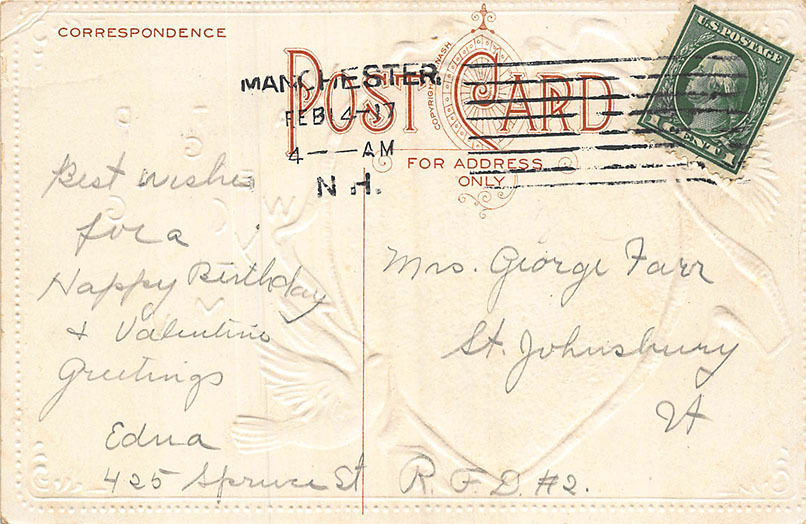 CORRESPONDENCE
POST CARD
COPYRIGHT
NASH
FOR ADDRESS
ONLY
U.S. POSTAGE
1 CENT 1
MANCHESTER,
FEB 14 - 17
4 — AM
N.H.
Best wishes
for a
Happy Birthday
& Valentine
Greetings
Edna
425 Spruce St
Mrs. George Farr
St. Johnsbury
Vt
R. F. D. #2.